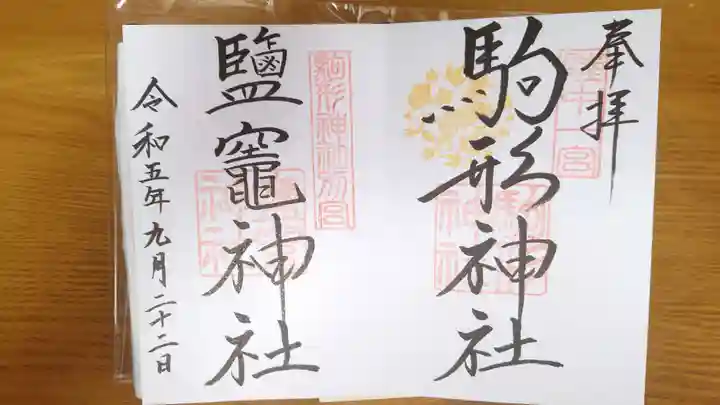 奉拝
駒形神社
鹽竈神社
駒形神社別宮
令和五年九月二十二日